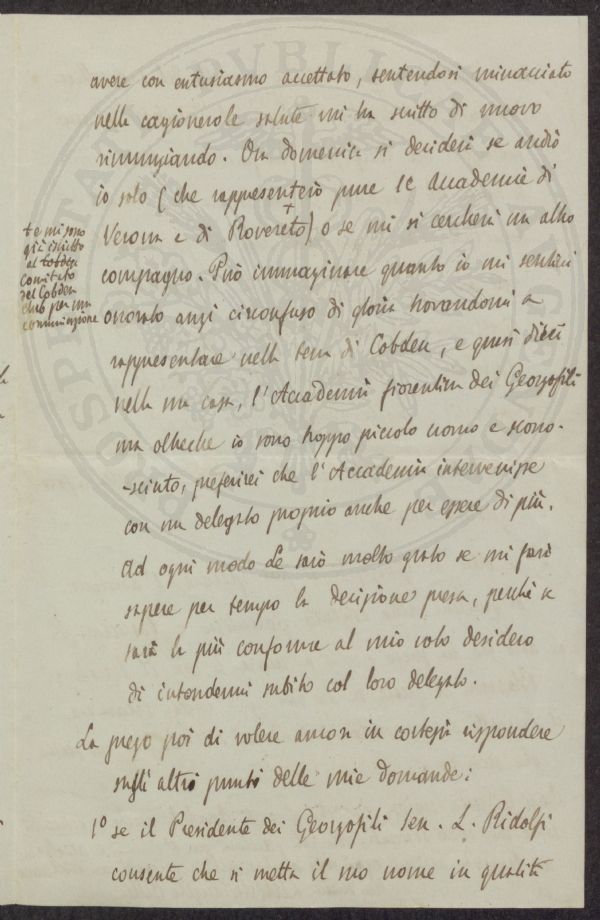 avere con entusiasmo accettato, sentendosi minacciato
nella cagionevole salute mi ha scritto di nuovo
rinunziando. Ora domenica si deciderà se andrò
io solo (che rappresenterò pure le Accademie di
Verona e di Rovereto)+ o se mi si cercherà un altro
compagno. Può immaginare quanto io mi sentirei
onorato anzi circonfuso di gloria trovandomi a
rappresentare nella terra di Cobden, e quasi direi
nella sua casa, l'Accademia fiorentina dei Georgofili
ma oltreché io sono troppo piccolo uomo e scono-
-sciuto, preferirei che l'Accademia intervenisse
con un delegato proprio anche per essere di più.
Ad ogni modo Le sarò molto grato se mi farà
sapere per tempo la decisione presa, perchè se
sarà la più conforme al mio voto desidero
di intendermi subito col loro delegato.
La prego poi di volere ancora in cortesia rispondere
sugli altri punti delle mie domande:
1º se il Presidente dei Georgofili Sen. L. Ridolfi
consente che si metta il suo nome in qualità
+ e mi sono
già iscritto
al Cobden
Comitato
del Cobden
club per una
comunicazione
PROSPERITATI PUBLICAE AUGENDAE